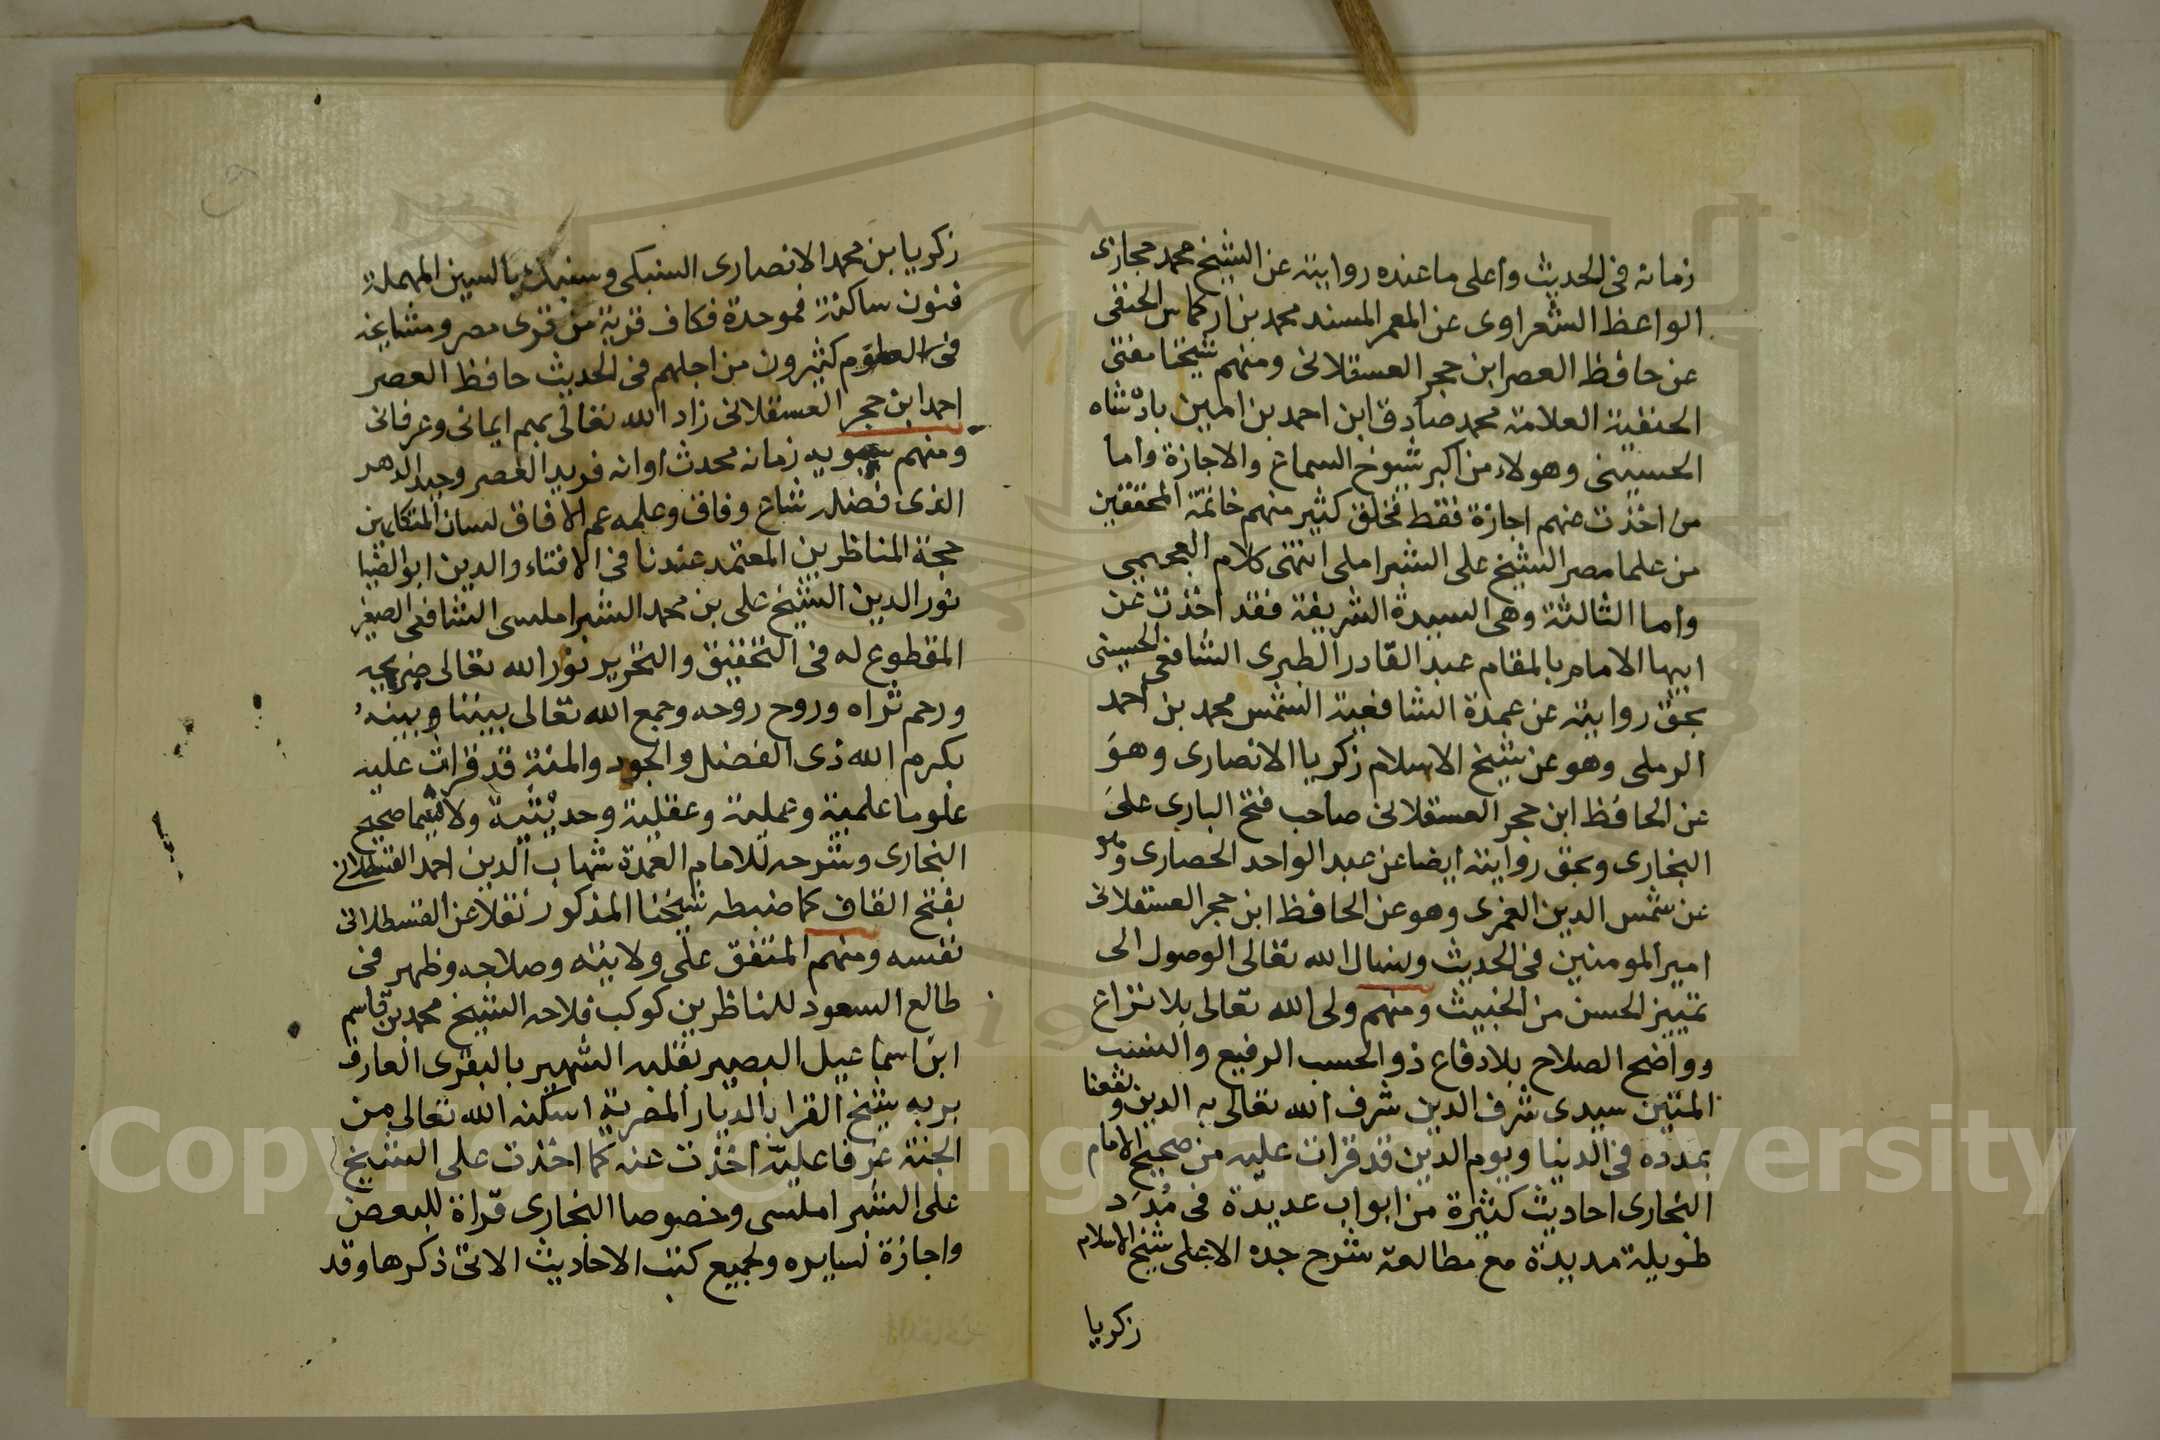 زمانه فى الحديث واعلى ما عنده روايته عن الشيخ محمد حجازى
الواعظ الشعراوى عن المعمر المسند محمد بن اركماس الحنفى
عن حافظ العصر ابن حجر العسقلانى ومنهم شيخنا مفتى
الحنفية العلامة محمد صادق ابن احمد بن بادشاه
الحسينى وهولاء من اكبر شيوخ السماع والاجازة واما
من اخذت منهم اجازة فقط فخلق كثير منهم خاتمة المحققين
من علما مصر الشيخ على الشبراملى انتهى كلام العجيمى
واما الثالثة وهى السيدة الشريفة فقد اخذت عن
ابيها الامام بالمقام عبد القادر الطبرى الشافعى الحسينى
بحق روايته عن عمدة الشافعية الشمس محمد بن احمد
الرملى وهو عن شيخ الاسلام زكريا الانصارى وهو
عن الحافظ ابن حجر العسقلانى صاحب فتح البارى على
البخارى وبحق روايته ايضا عن عبد الواحد الحصارى وهو
عن شمس الدين الغمرى وهو عن الحافظ ابن حجر العسقلانى
امير المومنين فى الحديث ونسال الله تعالى الوصول الى
تمييز الحسن من الخبيث ومنهم ولى الله تعالى بلا نزاع
وواضح الصلاح بلا دفاع ذو الحسب الرفيع والنسب
المتين سيدى شرف الدين شرف الله تعالى به الدين ونفعنا
بمدده فى الدنيا ويوم الدين قد قرات عليه من صحيح الامام
البخارى احاديث كثيرة من ابواب عديدة فى مُدَد
طويلة مديدة مع مطالعة شرح جده الاعلى شيخ الاسلام
زكريا
زكريا بن محمد الانصارى السنبكى وسنبك بالسين المهملة
فنون ساكنة فموحدة فكاف قرية من قرى مصر ومشايخه
فى العلوم كثيرون من اجلهم فى الحديث حافظ العصر
احمد ابن حجر العسقلانى زاد الله تعالى بهم ايمانى وعرفانى
ومنهم سيبويه زمانه محدث اوانه فريد العصر وحيد الدهر
الذى فضله شاع وفاق وعلمه عم الافاق لسان المتكلمين
حجة المناظرين المعتمد عندنا فى الافتاء والدين ابو الضيا
نور الدين الشيخ على بن محمد الشبراملسى الشافعى
المقطوع له فى التحقيق والتحرير نور الله تعالى ضريحه
ورحم ثراه وروح روحه وجمع الله تعالى بيننا وبينه
بكرم الله ذى الفضل والجود والمنة قد قرات عليه
علوما علمية وعملية وعقلية وحديثية ولاسيما صحيح
البخارى وشرحه للامام العمدة شهاب الدين احمد القسطلانى
بفتح القاف كما ضبطه شيخنا المذكور نقلا عن القسطلانى
نفسه ومنهم المتفق على ولايته وصلاحه وظهر فى
طالع السعود للناظرين كوكب فلاحه الشيخ محمد بن قاسم
ابن اسماعيل البصير بقلبه الشهير بالبقرى العارف
بربه شيخ القرا بالديار المصرية اسكنه الله تعالى من
الجنة غرفا علية اخذت عنه كما اخذت على الشيخ
على الشبراملسى وخصوصا البخارى قراة للبعض
واجازة لسايره ولجميع كتب الاحاديث الاتى ذكرها وقد
Copyright © King Saud University